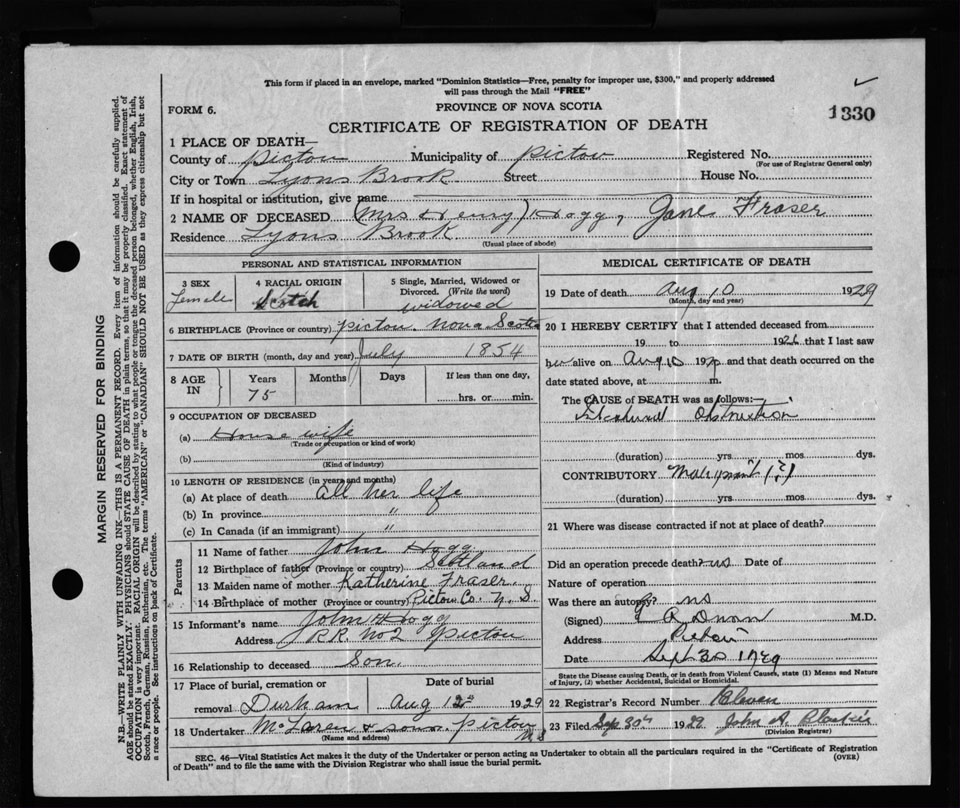 This form if placed in an envelope, marked "Dominion Statistics—Free, penalty for improper use, $300," and properly addressed
will pass through the Mail "FREE"
FORM 6.
PROVINCE OF NOVA SCOTIA
1330
CERTIFICATE OF REGISTRATION OF DEATH
1 PLACE OF DEATH—
County of Pictou Municipality of Pictou Registered No.
(For use of Registrar General only)
City or Town Lyons Brook Street House No.
If in hospital or institution, give name
2 NAME OF DECEASED (Mrs Henry) Hogg, Jane Fraser
Residence Lyons Brook.
(Usual place of abode)
PERSONAL AND STATISTICAL INFORMATION
3 SEX
Female
4 RACIAL ORIGIN
Scotch
5 Single, Married, Widowed or
Divorced. (Write the word)
widowed
6 BIRTHPLACE (Province or country) Pictou Nova Scotia
7 DATE OF BIRTH (month, day and year) July 1854
8 AGE IN
Years
75
Months
Days
If less than one day,
hrs. or min.
9 OCCUPATION OF DECEASED
(a) House wife
(Trade or occupation or kind of work)
(b)
(Kind of industry)
10 LENGTH OF RESIDENCE (in years and months)
(a) At place of death all her life
(b) In province "
(c) In Canada (if an immigrant) "
Parents
11 Name of father John Hogg
12 Birthplace of father (Province or country) Scotland
13 Maiden name of mother Katherine Fraser.
14 Birthplace of mother (Province or country) Pictou Co. N.S.
15 Informant's name John Hogg
Address R.R. No 2 Pictou
16 Relationship to deceased Son.
17 Place of burial, cremation or
removal Durham
Date of burial
Aug 12th 1929
18 Undertaker McLaren & sons Pictou N.S
(Name and address)
MEDICAL CERTIFICATE OF DEATH
19 Date of death Aug 10 1929
(Month, day and year)
20 I HEREBY CERTIFY that I attended deceased from
19 to 192 that I last saw
her alive on Aug 10 19 and that death occurred on the
date stated above, at m.
The CAUSE OF DEATH was as follows:—
Obstruction
(duration) yrs mos dys.
CONTRIBUTORY (?)
(duration) yrs mos dys.
21 Where was disease contracted if not at place of death?
Did an operation precede death? no Date of
Nature of operation
Was there an autopsy? no
(Signed) M.D.
Address Pictou
Date Sept 30 1929
State the Disease causing Death, or in death from Violent Causes, state (1) Means and Nature
of Injury, (2) whether Accidental, Suicidal or Homicidal.
22 Registrar's Record Number Eleven
23 Filed Sep 30th 1929 John A.
(Division Registrar)
SEC. 46—Vital Statistics Act makes it the duty of the Undertaker or person acting as Undertaker to obtain all the particulars required in the "Certificate of Registration
of Death" and to file the same with the Division Registrar who shall issue the burial permit.
(OVER)
MARGIN RESERVED FOR BINDING
N.B.—WRITE PLAINLY WITH UNFADING INK—THIS IS A PERMANENT RECORD. Every item of information should be carefully supplied.
AGE should be stated EXACTLY. PHYSICIANS should STATE CAUSE OF DEATH in plain terms, so that it may be properly classified. Exact statement of
OCCUPATION is very important. RACIAL ORIGIN will be described by stating to what people or tongue the deceased person belonged, whether English, Irish,
Scotch, French, German, Russian, Ruthenian, etc. The terms "AMERICAN" or "CANADIAN" SHOULD NOT BE USED as they express citizenship but not
a race or people. See instructions on back of Certificate.